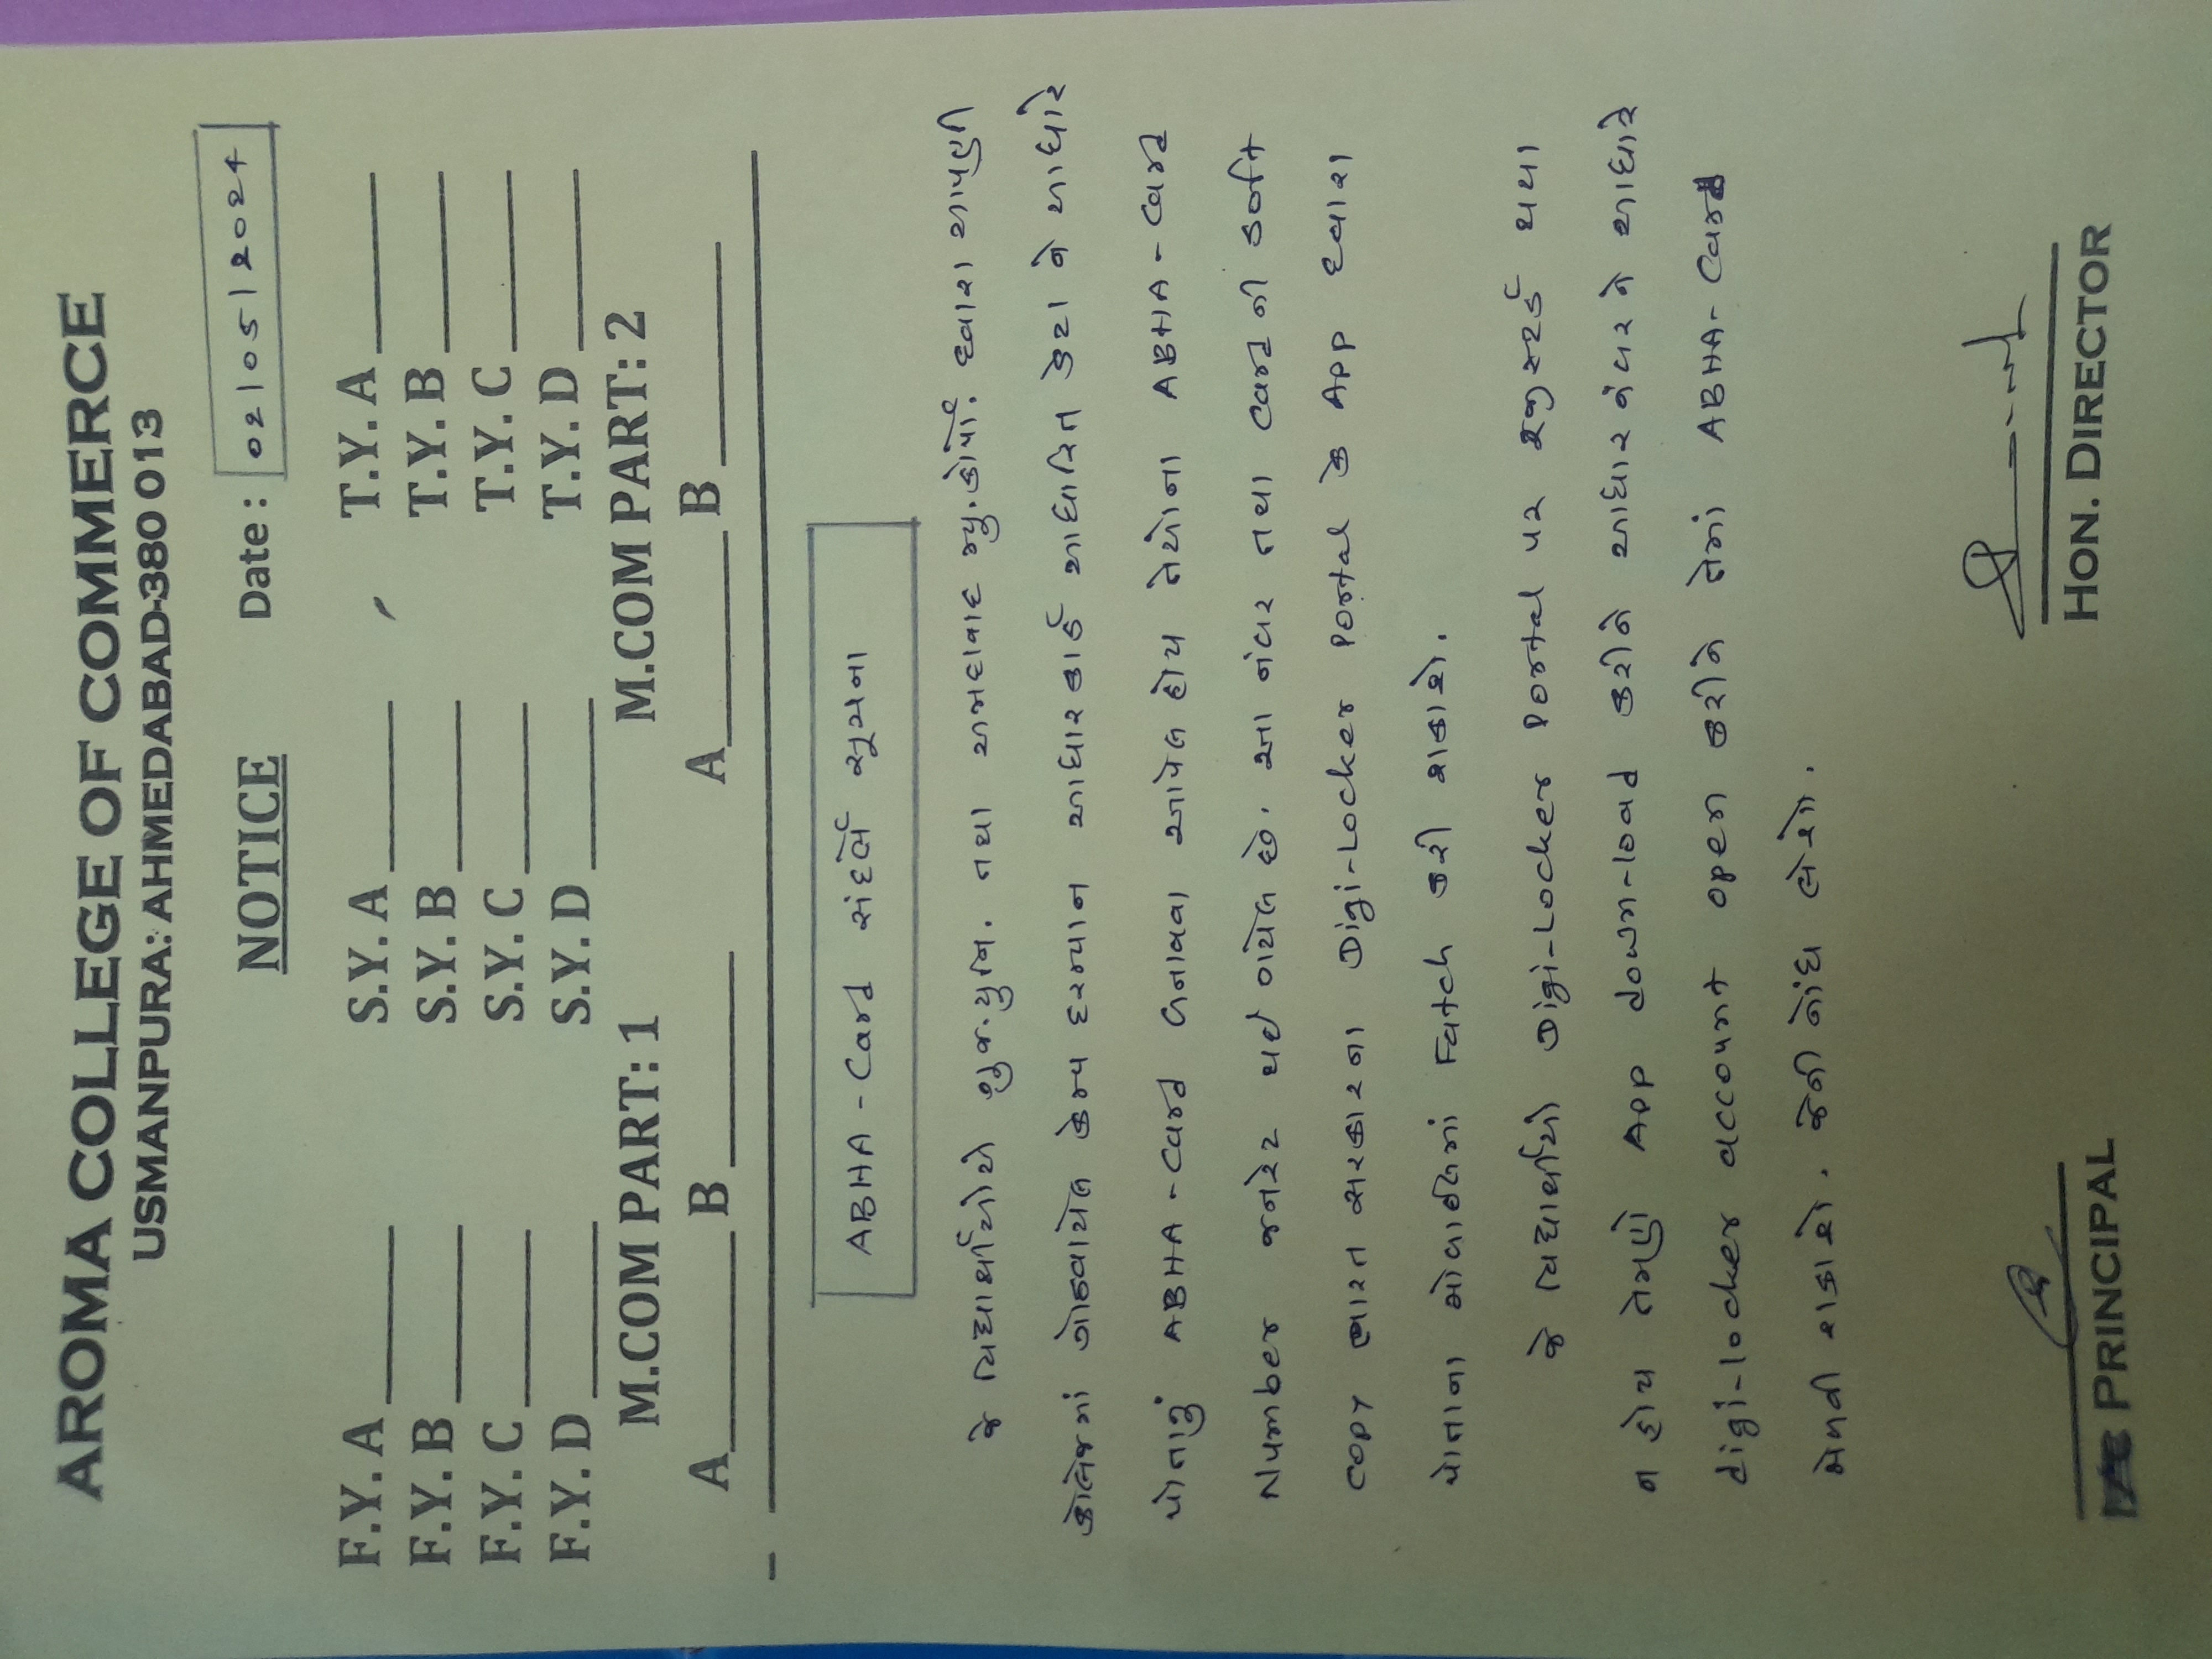 AROMA COLLEGE OF COMMERCE
USMANPURA: AHMEDABAD-380 013
NOTICE Date : 02/05/2024
F.Y. A S.Y. A T.Y. A
F.Y. B S.Y. B T.Y. B
F.Y. C S.Y. C T.Y. C
F.Y. D S.Y. D T.Y. D
M.COM PART: 1 M.COM PART: 2
A B A B
ABHA - Card સંદર્ભે સૂચના
જે વિદ્યાર્થીઓએ ગુજ.યુનિ. તથા અમદાવાદ મ્યુ.કોર્પો. દ્વારા આપણી
કોલેજમાં ગોઠવાયેલ કેમ્પ દરમ્યાન આધારકાર્ડ આધારિત ડેટા ને આધારે
પોતાનું ABHA - Card બનાવવા આપેલ હોય તેઓના ABHA - Card
Number જનરેટ થઈ ગયેલ છે. આ નંબર તથા Card ની સોફ્ટ
copy ભારત સરકારના Digi-Locker Portal કે App દ્વારા
પોતાના મોબાઈલમાં Fatch કરી શકાશે.
જે વિદ્યાર્થીઓ Digi-Locker Portal પર રજીસ્ટર્ડ થયા
ન હોય તેમણે App down-load કરીને આધાર નંબર ને આધારે
digi-locker account open કરીને તેમાં ABHA- Card
મેળવી શકાશે. જેની નોંધ લેશો.
PRINCIPAL HON. DIRECTOR